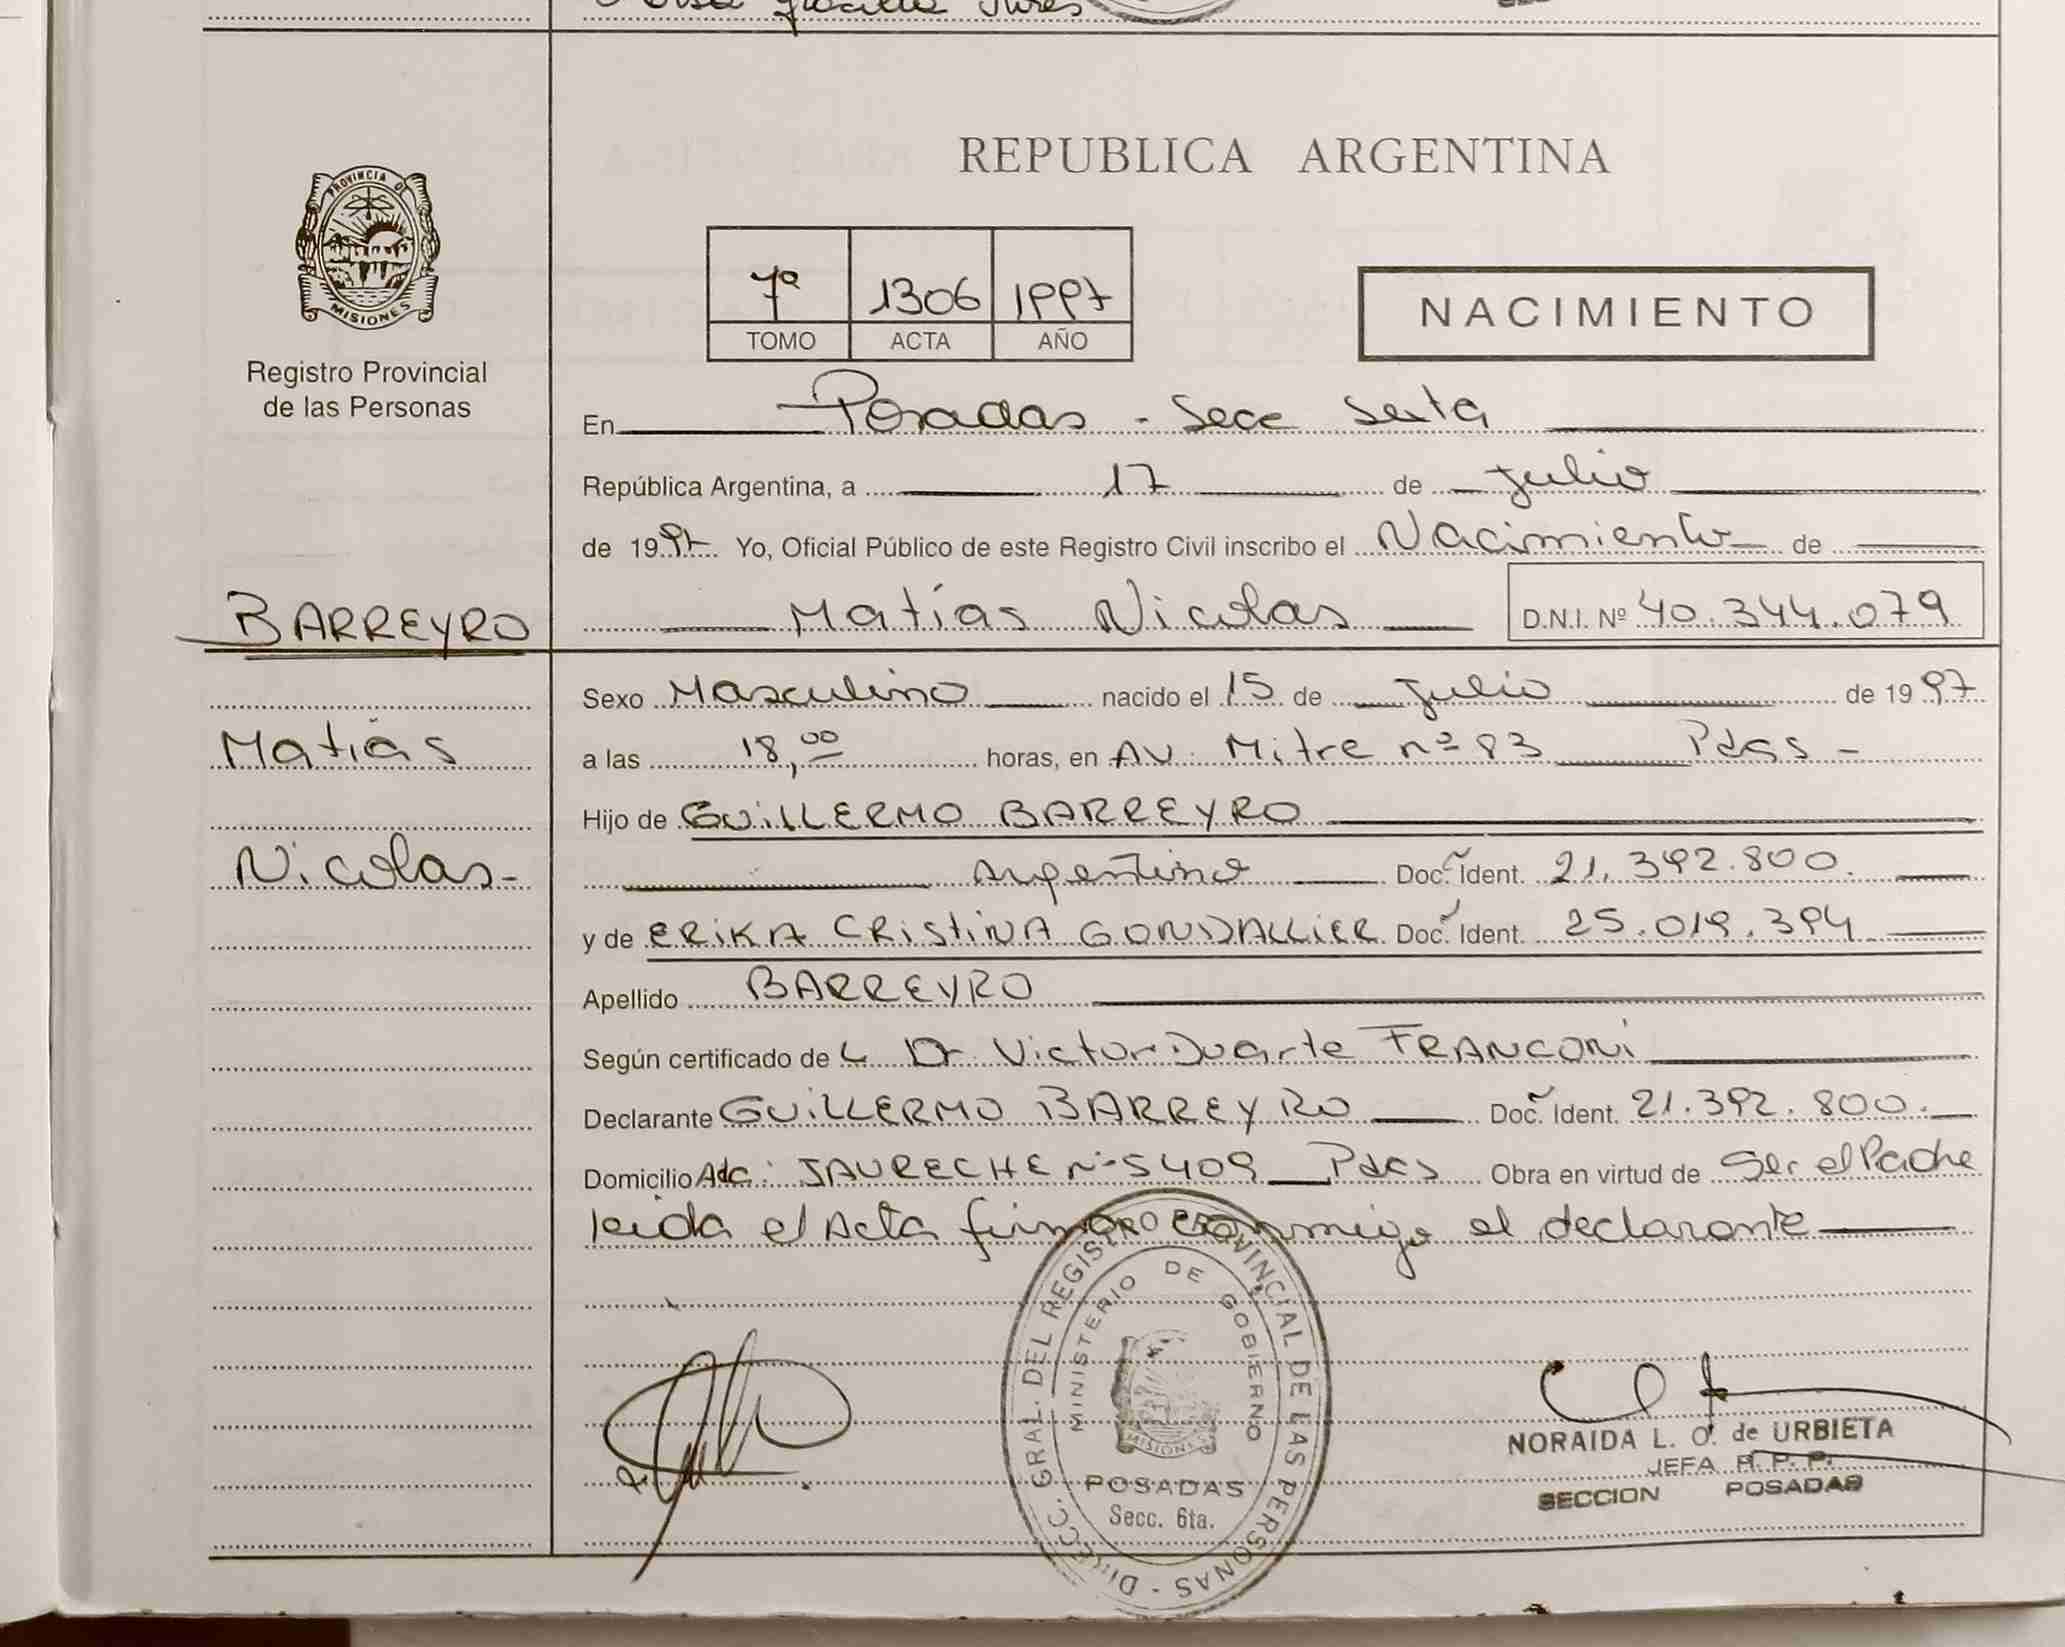 PROVINCIA DE
MISIONES
Registro Provincial
de las Personas
REPUBLICA ARGENTINA
7º 1306 1997
TOMO ACTA AÑO
NACIMIENTO
En Posadas - Secc Sexta
República Argentina, a 17 de Julio
de 1997 Yo, Oficial Público de este Registro Civil inscribo el Nacimiento de
BARREYRO Matías Nicolas D.N.I. Nº 40.344.079
Sexo Masculino nacido el 15 de Julio de 1997
Matías a las 18,00 horas, en AV. Mitre nº 83 Pdas -
Hijo de GUILLERMO BARREYRO
Nicolas- Argentino Doc. Ident. 21.392.800.
y de ERIKA CRISTINA GONDALLIER Doc. Ident. 25.019.394
Apellido BARREYRO
Según certificado de L Dr. Victor Duarte FRANCONI
Declarante GUILLERMO BARREYRO Doc. Ident. 21.392.800.
Domicilio JAURECHE Nº 5409 Pdas Obra en virtud de Ser el Padre
leida el Acta firmaro conmigo el declarante
DIRECC. GRAL. DEL REGISTRO PROVINCIAL DE LAS PERSONAS -
MINISTERIO DE GOBIERNO
MISIONES
POSADAS
Secc. 6ta.
NORAIDA L. O. de URBIETA
JEFA R. P. P.
SECCION POSADAS